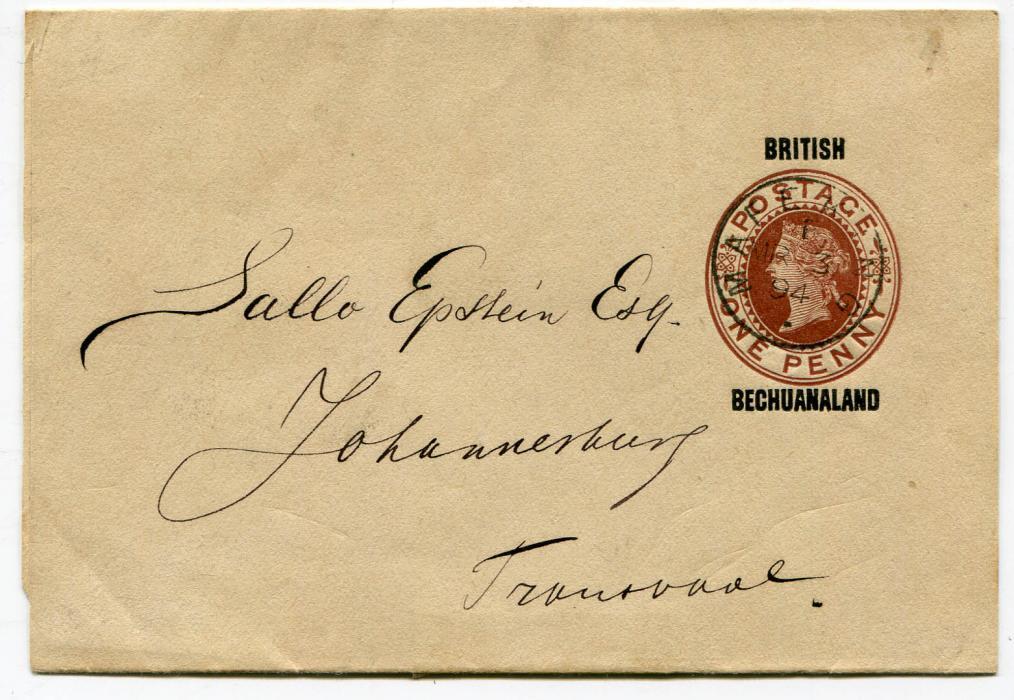 BRITISH
POSTAGE
ONE PENNY
MAFEKING
3
94
BECHUANALAND
Sallo Epstein Esq.
Johannesburg
Transvaal.